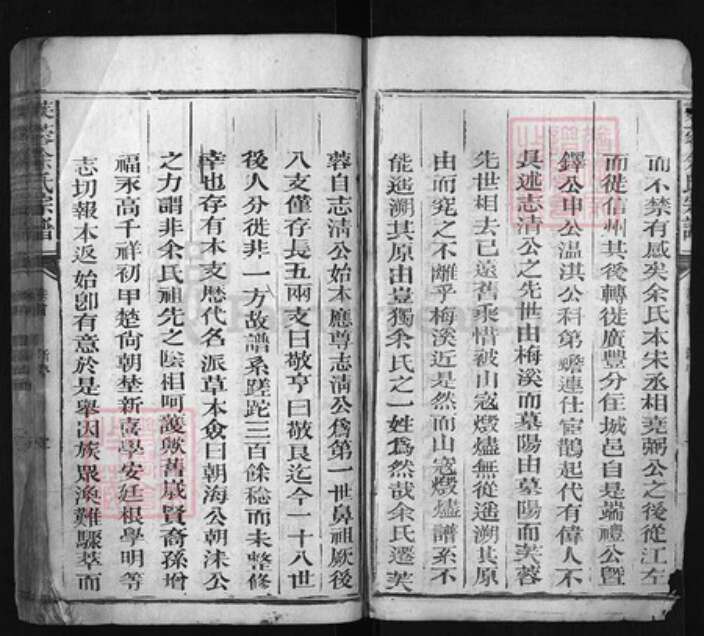 而不禁有感矣余氏本宋丞相堯弼公之後從江左
而從信州其後轉徙廣豐分在城邑自是端禮公暨
鐸公申公溫淇公科第蟾連仕宦鵲起代有偉人不
具述志清公之先世由梅溪而墓陽由墓陽而芙蓉
先世相去已遠舊乘惜被山寇燬燼無從遡溯其原
由而究之不離乎梅溪近是然而山寇燬燼譜系不
能遡溯其原由豈獨余氏之一姓為然哉余氏遷芙
蓉自志清公始本應尊志清公為第一世鼻祖厥後
八支僅存長五兩支曰敬亨曰敬良迄今一十八世
後人分徙非一方故譜系蹉跎三百餘稔而未整修
幸也存有本支歷代名派草本僉曰朝海公朝沫公
之力謂非余氏祖先之陰相呵護歟舊歲賢裔孫增
福永高千祥初甲楚尚朝埜新喬學安廷根學明等
志切報本返始卽有意於是舉因族眾渙難驟萃而
芙蓉余氏宗譜